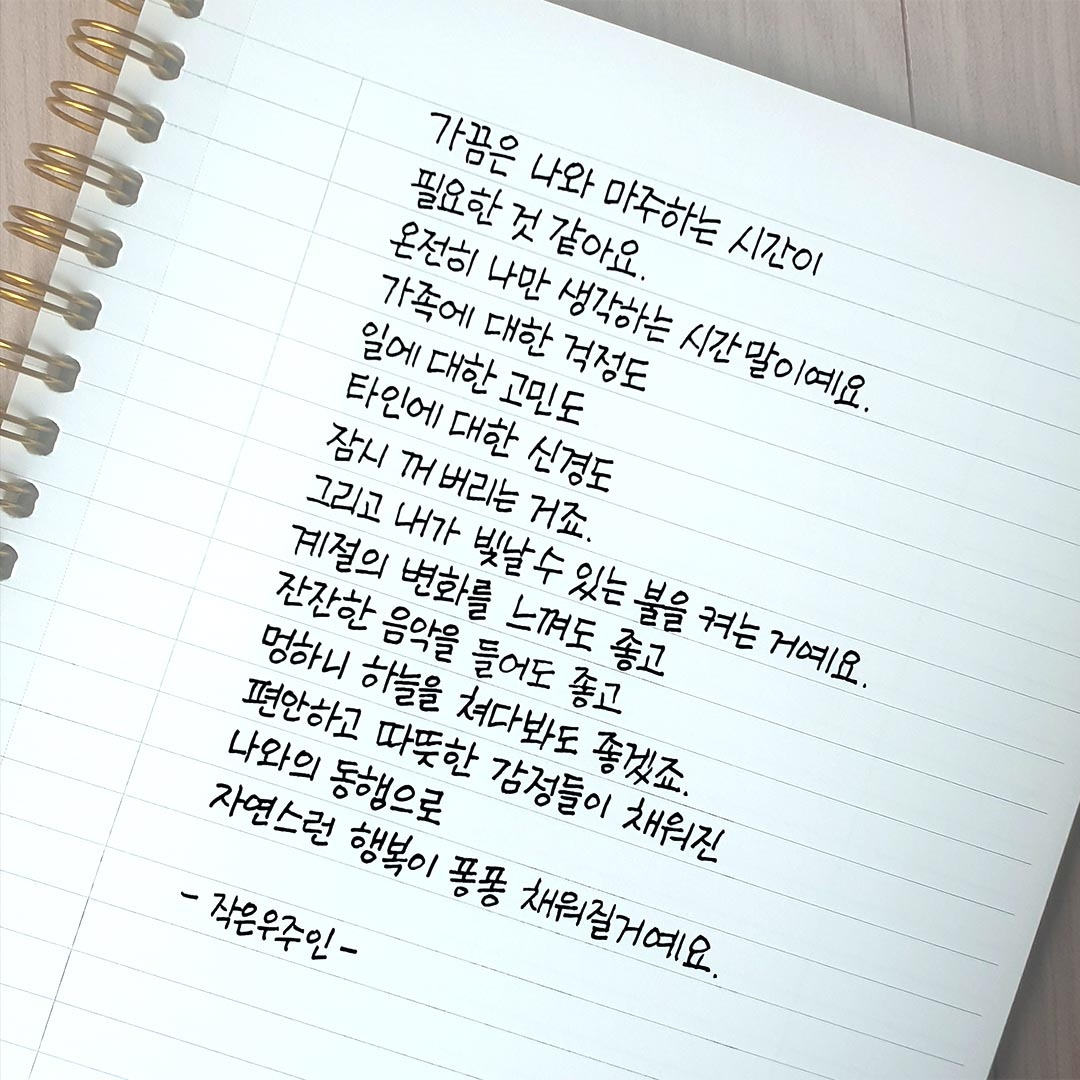 가끔은 나와 마주하는 시간이
필요한 것 같아요.
온전히 나만 생각하는 시간말이예요.
가족에 대한 걱정도
일에 대한 고민도
타인에 대한 신경도
잠시 꺼 버리는 거죠.
그리고 내가 빛날 수 있는 불을 켜는 거예요.
계절의 변화를 느껴도 좋고
잔잔한 음악을 들어도 좋고
멍하니 하늘을 쳐다봐도 좋겠죠.
편안하고 따뜻한 감정들이 채워진
나와의 동행으로
자연스런 행복이 퐁퐁 채워질거예요.
- 작은우주인 -